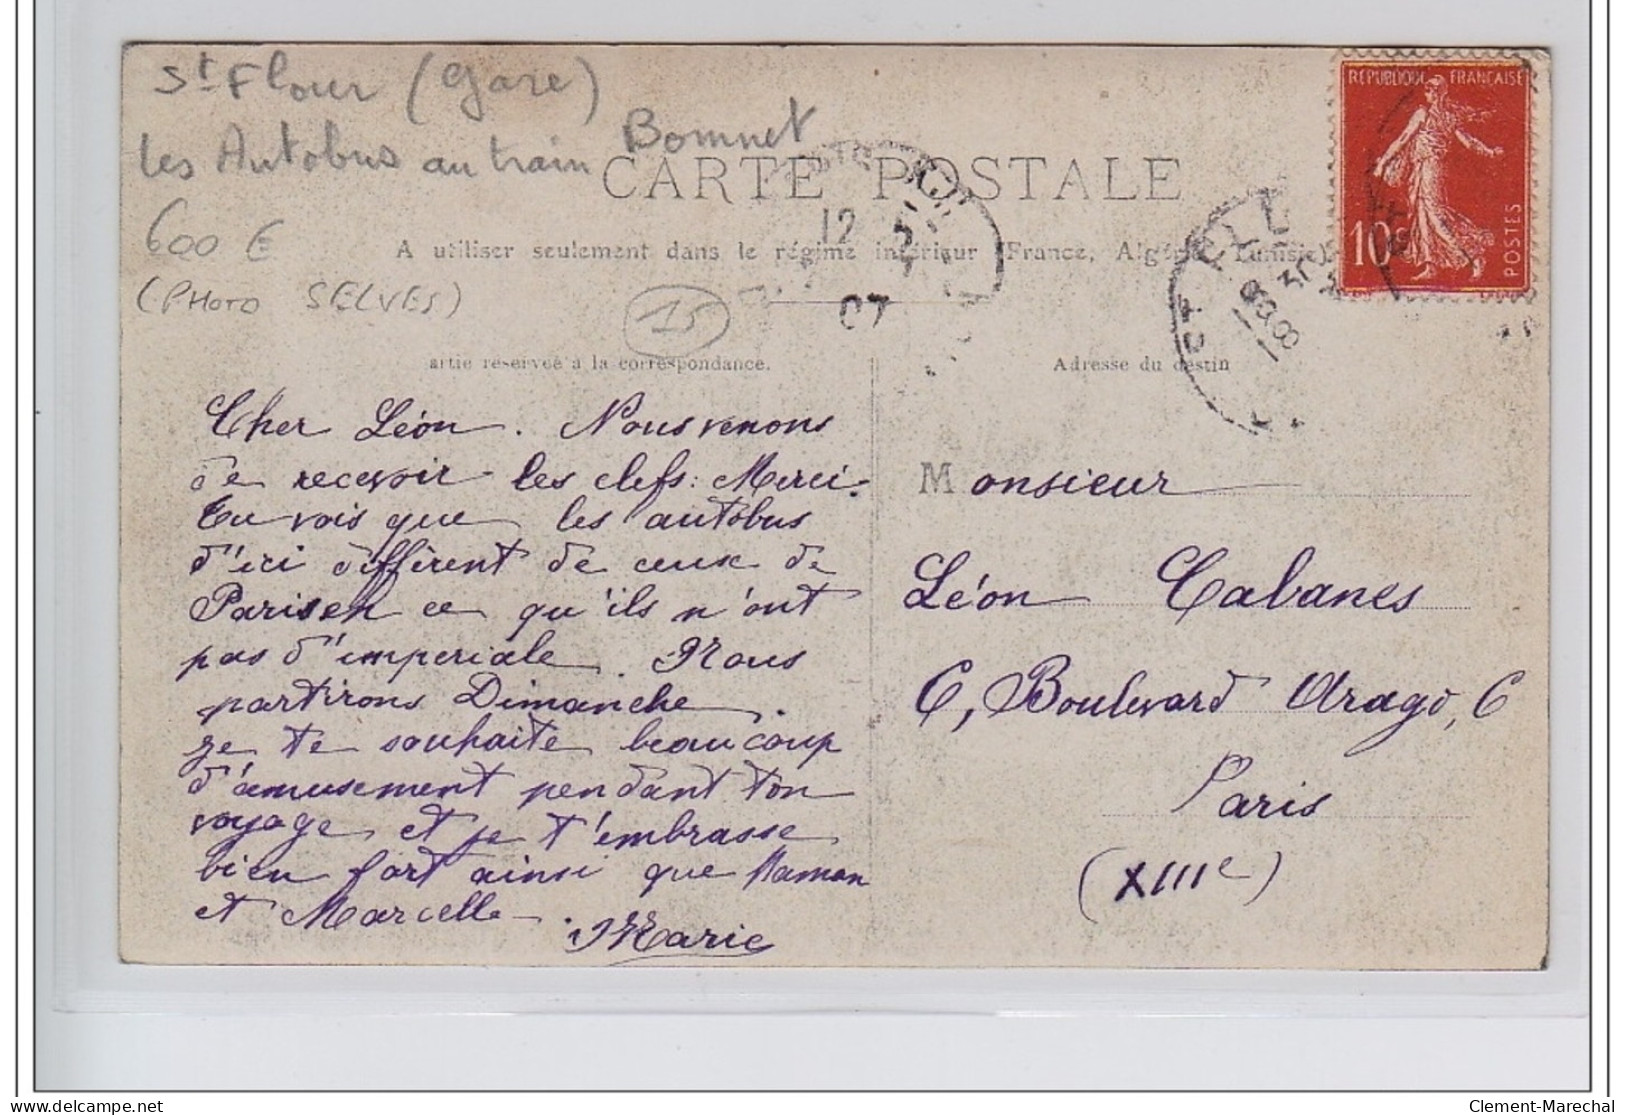 St Flour (gare)
les Autobus au train Bomnet
CARTE POSTALE
600 €
(PHOTO SELVES)
15
A utiliser seulement dans le régime intérieur (France, Algérie, Tunisie).
12
07
REPUBLIQUE FRANÇAISE
10c
POSTES
artie réservée à la correspondance.
Adresse du destin
Cher Léon. Nous venons
de recevoir les clefs: Merci.
Tu vois que les autobus
d'ici diffèrent de ceux de
Paris en ce qu'ils n'ont
pas d'imperiale. Nous
partirons Dimanche.
Je te souhaite beaucoup
d'amusement pendant ton
voyage et je t'embrasse
bien fort ainsi que Maman
et Marcelle.
Marie
Monsieur
Léon Cabanes
6, Boulevard Arago, 6
Paris
(XIIIe)
Clement-Marechal